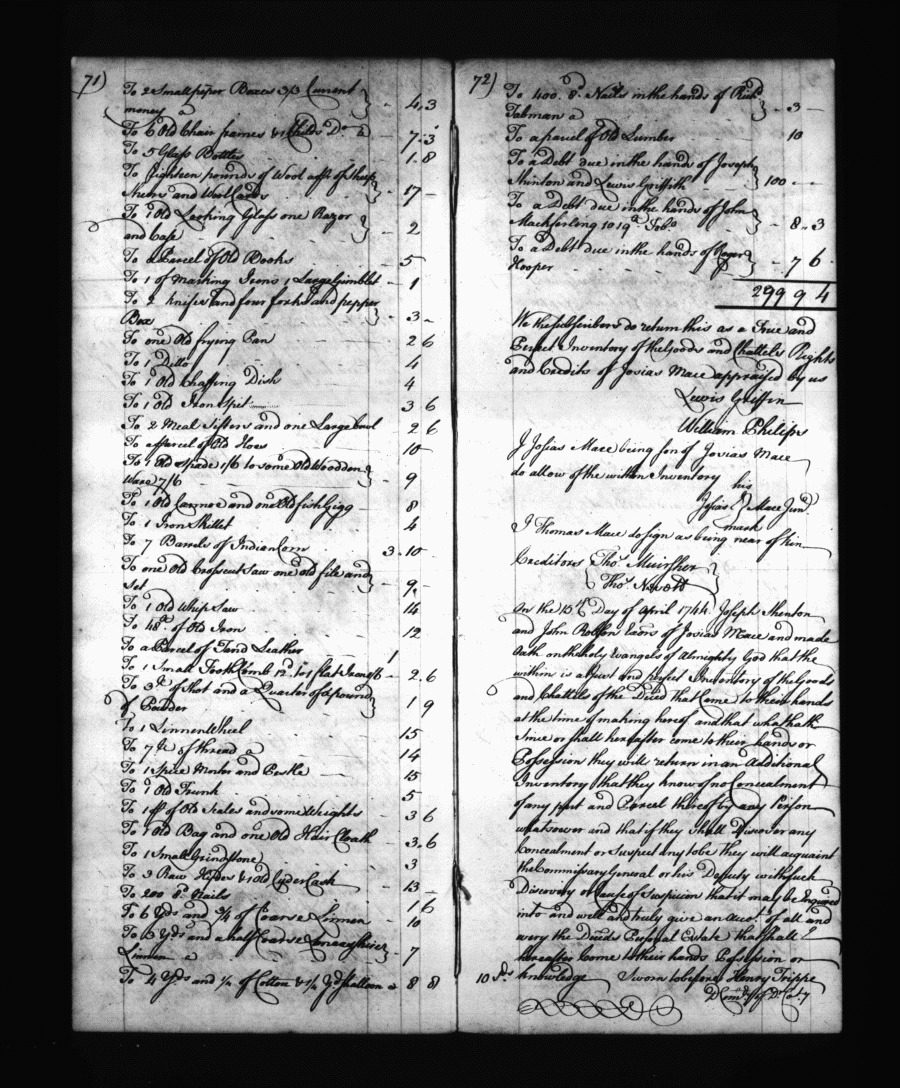 71)
To 2 Small paper Boxes 3/3 Current
money a - 4.3
To 6 Old Chair frames & 1 Childs Do a - 7.3
To 5 Glass Bottles 1.8
To Eighteen pounds of Wool a pr of Sheep
Shears and Wool Cards - 17 -
To 1 Old Looking Glass one Razor
and Case - 2
To a Parcel of Old Books - 5
To 1 of Marking Irons 1 Large Gimblet - 1
To 2 knifes and four forks and pepper
Box - 3 -
To one Old frying Pan 2 6
To 1 Ditto 4
To 1 Old Chaffing Dish 4
To 1 Old Iron Spit 3 6
To 2 Meal Sifters and one Large bowl 2 6
To a Parcel of Old Hoes 10 -
To 1 Old Spade 1/6 to some Old Woodden
Ware 7/6 - 9
To 1 Old Cannoe and one Old fish Gigg - 8
To 1 Iron Skillet 4
To 7 Barrels of Indian Corn 3 - 10 -
To one Old Crosscut Saw one old file and
Set - 9 -
To 1 Old Whip Saw 14
To 48 lb of Old Iron 12
To a Parcel of Leather 1
To 1 Small Tooth Comb 12d to 1 flat Iron - 2.6
To 3 lb of Shot and a Quarter of a pound
of Powder 1 9
To 1 Linnen Wheel 15
To 7 lb of thread a 14
To 1 Spice Morter and Pestle 15
To 1 Old Trunk 5
To 1 pr of Old Scales and some Weights 3 6
To 1 Old Bag and one Old Hair Cloath - 3.6
To 1 Small Grindstone 3
To 3 Raw Hides & 1 Old Cyder Cask - 13 -
To 200 8d Nails 1 6
To 6 Yds and 3/4 of Coarse Linnen - 10
To 5 Yds and a half Coarse
Linnen a - 7
To 4 Yds and 1/2 of Cotton & 1/4 Yd Shalloon a 8 8
72)
To 400. 8d Nails in the hands of Richd
Tubman a - 3 -
To a parcel of Old Lumber 10
To a Debt due in the hands of Joseph
Shinton and Lewis Griffith 100 - -
To a Debt due in the hands of John
Mackferling 1019 lb Tobo - 8 .. 3
To a Debt due in the hands of Roger
Hooper - 7 6
299 9 4
We the Subscribers do return this as a True and
Perfect Inventory of the Goods and Chattels Rights
and Credits of Josias Mace appraised by us
Lewis Griffin
William Philips
I Josias Mace being Son of Josias Mace
do allow of the within Inventory his
Josias Mace Junr
mark
I Thomas Mace do sign as being near of kin
Creditors Thos Muirfher
Thos Nevett
On the 15th Day of April 1744 Joseph Shenton
and John Robson Exors of Josias Mace and made
Oath on the holy Evangels of Almighty God that the
within is a Just and perfect Inventory of the Goods
and Chattels of the Deced that Came to their hands
at the time of making hereof and that what hath
Since or shall hereafter come to their hands or
Possession they will return in an Additional
Inventory that they know of no Concealment
of any part and Parcel thereof by any Person
whatsoever and that if they Shall Discover any
Concealment or Suspect any to be they will acquaint
the Commissary General or his Deputy with such
Discovery or Cause of Suspicion that it may be Inquired
into and well and truly give an Accot of all and
every the Deceds Personal Estate that Shall
hereafter Come to their hands Possession or
10 Sds knowledge Sworn to before Henry Trippe
D Comry of Dr Coty